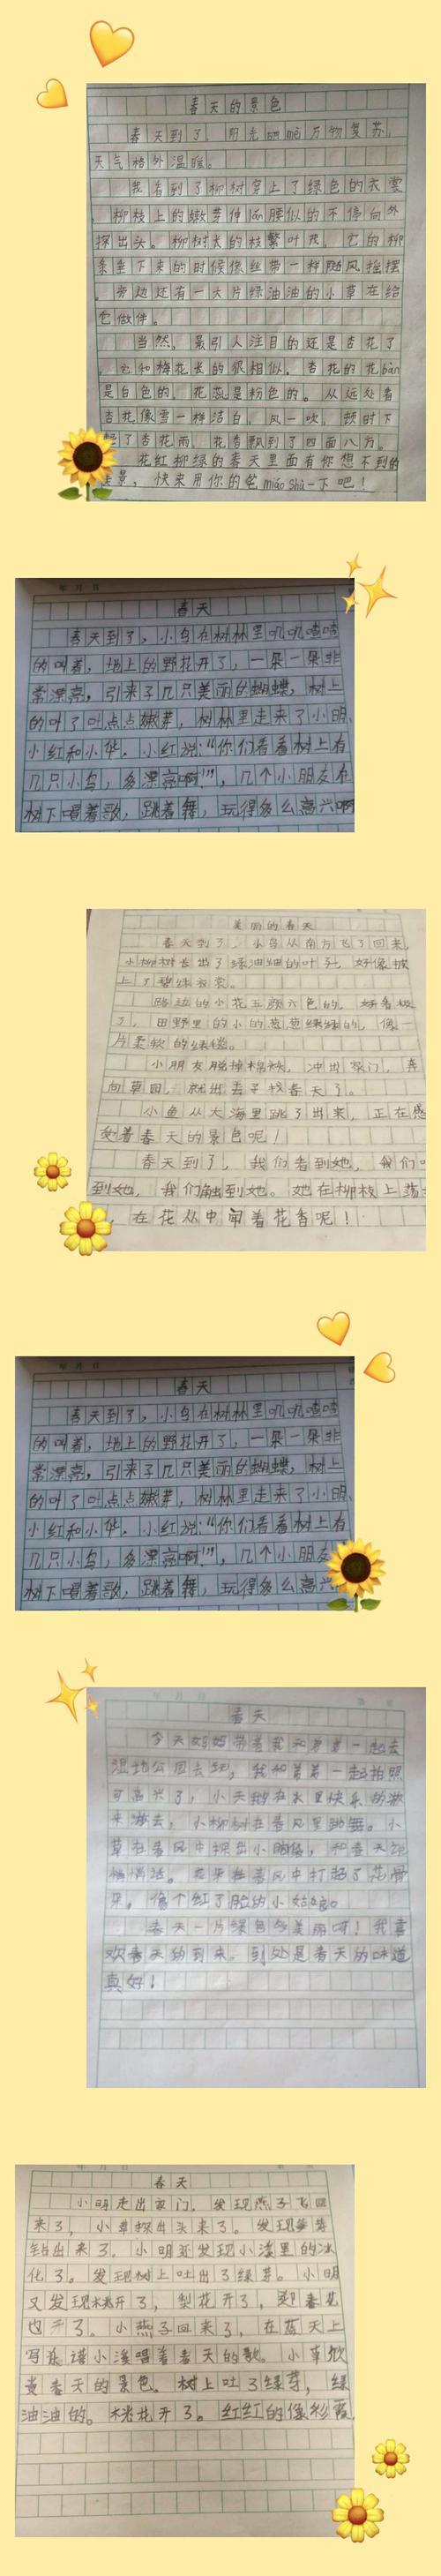 春天的景色
春天到了，阳光明媚万物复苏，
天气格外温暖。
我看到了柳树穿上了绿色的衣裳
，柳枝上的嫩芽伸lǎn腰似的不停向外
探出头。柳树长的枝繁叶茂，它的柳
条垂下来的时候像丝带一样随风摇摆
。旁边还有一大片绿油油的小草在给
它做伴。
当然，最引人注目的还是杏花了
，它和梅花长的很相似，杏花的花bàn
是白色的，花蕊是粉色的。从远处看
杏花像雪一样洁白，风一吹，顿时下
起了杏花雨，花香飘到了四面八方。
花红柳绿的春天里面有你想不到的
美景，快来用你的笔miáo shù一下吧！
春天
春天到了，小鸟在树林里叽叽喳喳
的叫着，地上的野花开了，一朵一朵非
常漂亮，引来了几只美丽的蝴蝶，树上
的叶了吐点点嫩芽，树林里走来了小明、
小红和小华。小红说：“你们看看树上有
几只小鸟，多漂亮啊！”，几个小朋友在
树下唱着歌，跳着舞，玩得多么高兴啊
美丽的春天
春天到了，小鸟从南方飞了回来，
小柳树长出了绿油油的叶子，好像披
上了碧绿衣裳。
路边的小花五颜六色的，好看极
了，田野里的小的葱葱绿绿的，像一
片柔软的绿毯。
小朋友脱掉棉袄，冲出家门，奔
向草田，就出去寻找春天了。
小鱼从大海里跳了出来，正在感
受着春天的景色呢！
春天到了，我们看到她，我们
到她，我们触到她。她在柳枝上荡
，在花丛中闻着花香呢！
春天
春天到了，小鸟在树林里叽叽喳喳
的叫着，地上的野花开了，一朵一朵非
常漂亮，引来了几只美丽的蝴蝶，树上
的叶了吐点点嫩芽，树林里走来了小明、
小红和小华。小红说：“你们看看树上有
几只小鸟，多漂亮啊！”，几个小朋友
树下唱着歌，跳着舞，玩得多么高兴
春天
今天妈妈带着我和弟弟一起去
湿地公园去玩，我和弟弟一起拍照
可高兴了，小天鹅在水里快乐的游
来游去，小柳树在春风里跳舞。小
草在春风中探出小脑袋，和春天说
悄悄话。花朵在春风中打起了花骨
朵，像个红了脸的小姑娘。
春天一片绿色多美丽呀！我喜
欢春天的到来。到处是春天的味道
真好！
春天
小明走出家门，发现燕子飞回
来了，小草探出头来了。发现
钻出来了。小明还发现小溪里的冰
化了。发现树上吐出了绿芽。小明
又发现桃开了，梨花开了，迎春花
也开了。小燕子回来了，在蓝天上
写乐谱小溪唱着春天的歌。小草欣
赏春天的景色。树上吐了绿芽，绿
油油的。桃花开了。红红的像彩霞。